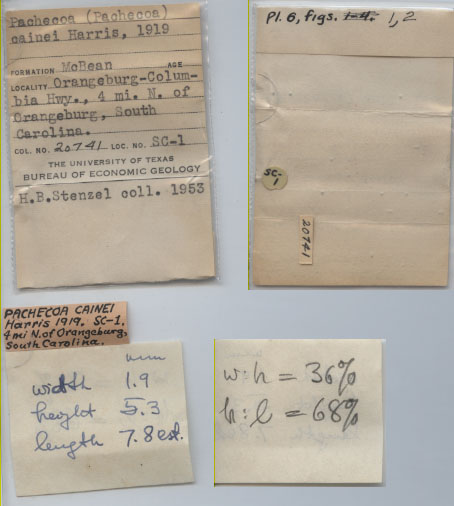 Pachecoa (Pachecoa)
cainei Harris, 1919
FORMATION McBean AGE
LOCALITY Orangeburg-Colum-
bia Hwy., 4 mi. N. of
Orangeburg, South
Carolina.
COL. NO. 20741 LOC. NO. SC-1
THE UNIVERSITY OF TEXAS
BUREAU OF ECONOMIC GEOLOGY
H.B.Stenzel coll. 1953
Pl. 6, figs. 1-4. 1, 2
SC-
1
20741
PACHECOA CAINEI
Harris 1919. SC-1.
4 mi N. of Orangeburg,
South Carolina.
mm
width 1.9
height 5.3
length 7.8 est.
w:h = 36%
h:l = 68%